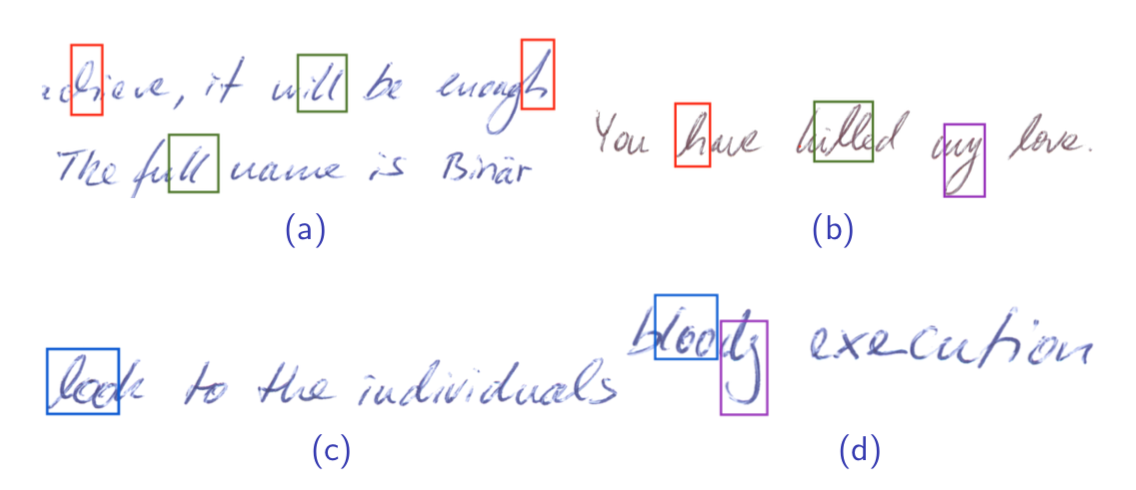 achieve, it will be enough
The full name is Binär
(a)
You have killed my love.
(b)
look to the individuals
(c)
bloody execution
(d)